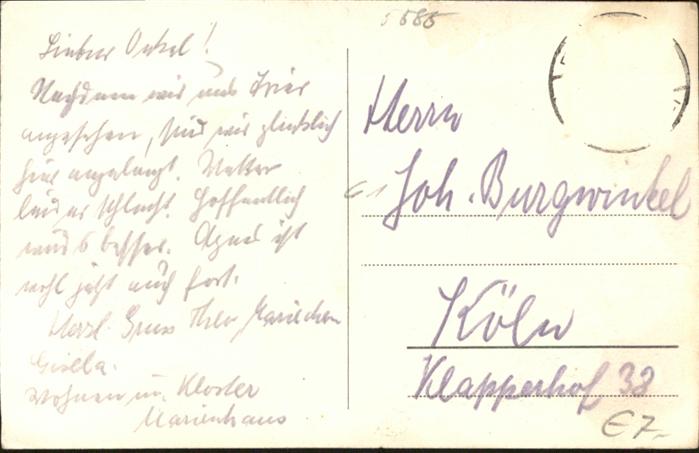 5585
Lieber Onkel!
Nachdem wir uns Trier
angesehen, sind wir glücklich
hier angelangt. Wetter
leider schlecht. Hoffentlich
wird's besser. Agnes ist
wohl jetzt auch fort.
Herzl. Gruss Theo Mariechen
Gisela.
Wohnen im Kloster
Marienhaus
Herrn
Joh. Burgwinkel
Köln
Klapperhof 38
€7.-